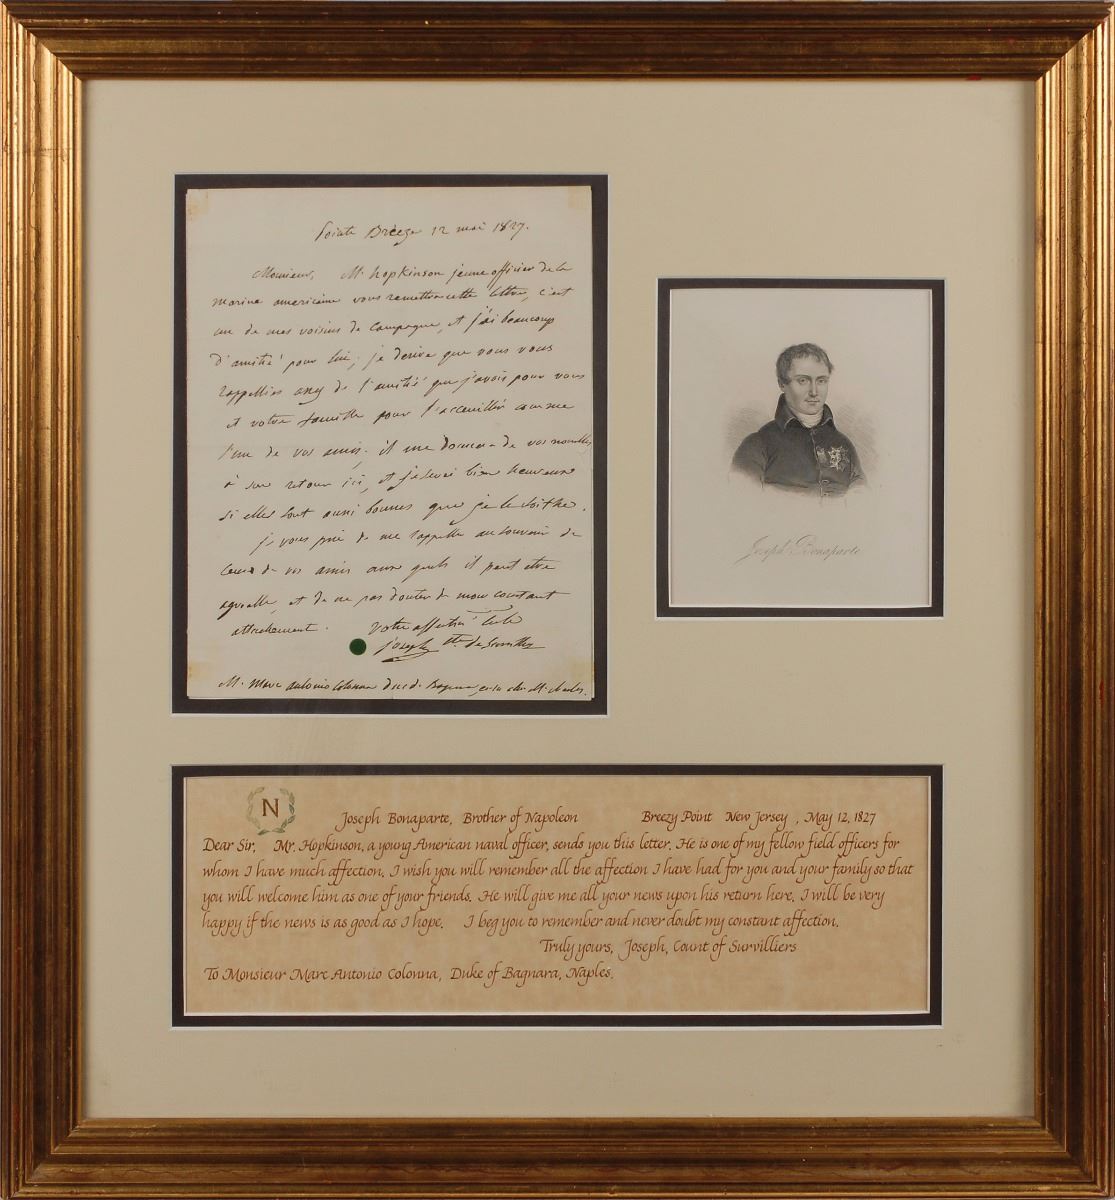 Pointe Breeze 12 mai 1827.
Monsieur, Mr. hopkinson jeune officier de la
marine américaine vous remettra cette lettre, c'est
un de mes voisins de campagne, et j'ai beaucoup
d'amitié pour lui; je desire que vous vous
rappelliez assez de l'amitié que j'avois pour vous
et votre famille pour l'accueillir comme
l'un de vos amis. il me donnera de vos nouvelles
à son retour ici, et je serai bien heureux
si elles sont aussi bonnes que je le
je vous prie de me rappeller au souvenir de
ceux de vos amis aux quels il peut etre
agreable, et de ne pas douter de mon constant
attachement. votre
joseph cte de Survilliers
Mr. Marc antonio Colonna duc de
Joseph Bonaparte
N
Joseph Bonaparte, Brother of Napoleon Breezy Point New Jersey, May 12, 1827
Dear Sir, Mr. Hopkinson, a young American naval officer, sends you this letter. He is one of my fellow field officers for
whom I have much affection. I wish you will remember all the affection I have had for you and your family so that
you will welcome him as one of your friends. He will give me all your news upon his return here. I will be very
happy if the news is as good as I hope. I beg you to remember and never doubt my constant affection.
Truly yours, Joseph, Count of Survilliers
To Monsieur Marc Antonio Colonna, Duke of Bagnara, Naples.